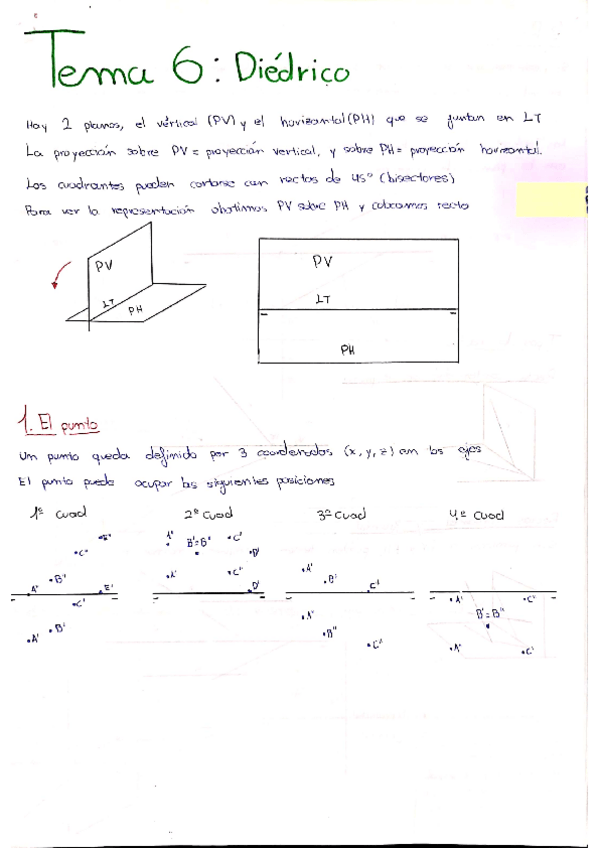 Tema 6: Diédrico
Hay 2 planos, el vertical (PV) y el horizontal (PH) que se juntan en LT
La proyección sobre PV = proyección vertical, y sobre PH = proyección horizontal.
Los cuadrantes pueden cortarse con rectas de 45º (bisectores)
Para ver la representación abatimos PV sobre PH y colocamos recto
PV
LT
PH
PV
LT
PH
1. El punto
Un punto queda definido por 3 coordenadas (x, y, z) con los ejes
El punto puede ocupar las siguientes posiciones
1º cuad 2º cuad 3º cuad 4º cuad
E" A' B'=B" C'
C" D'
B" A' C" A' B'
A" E' D' C' A' C"
C' B'=B"
B' A" B"
A' C" A" C'